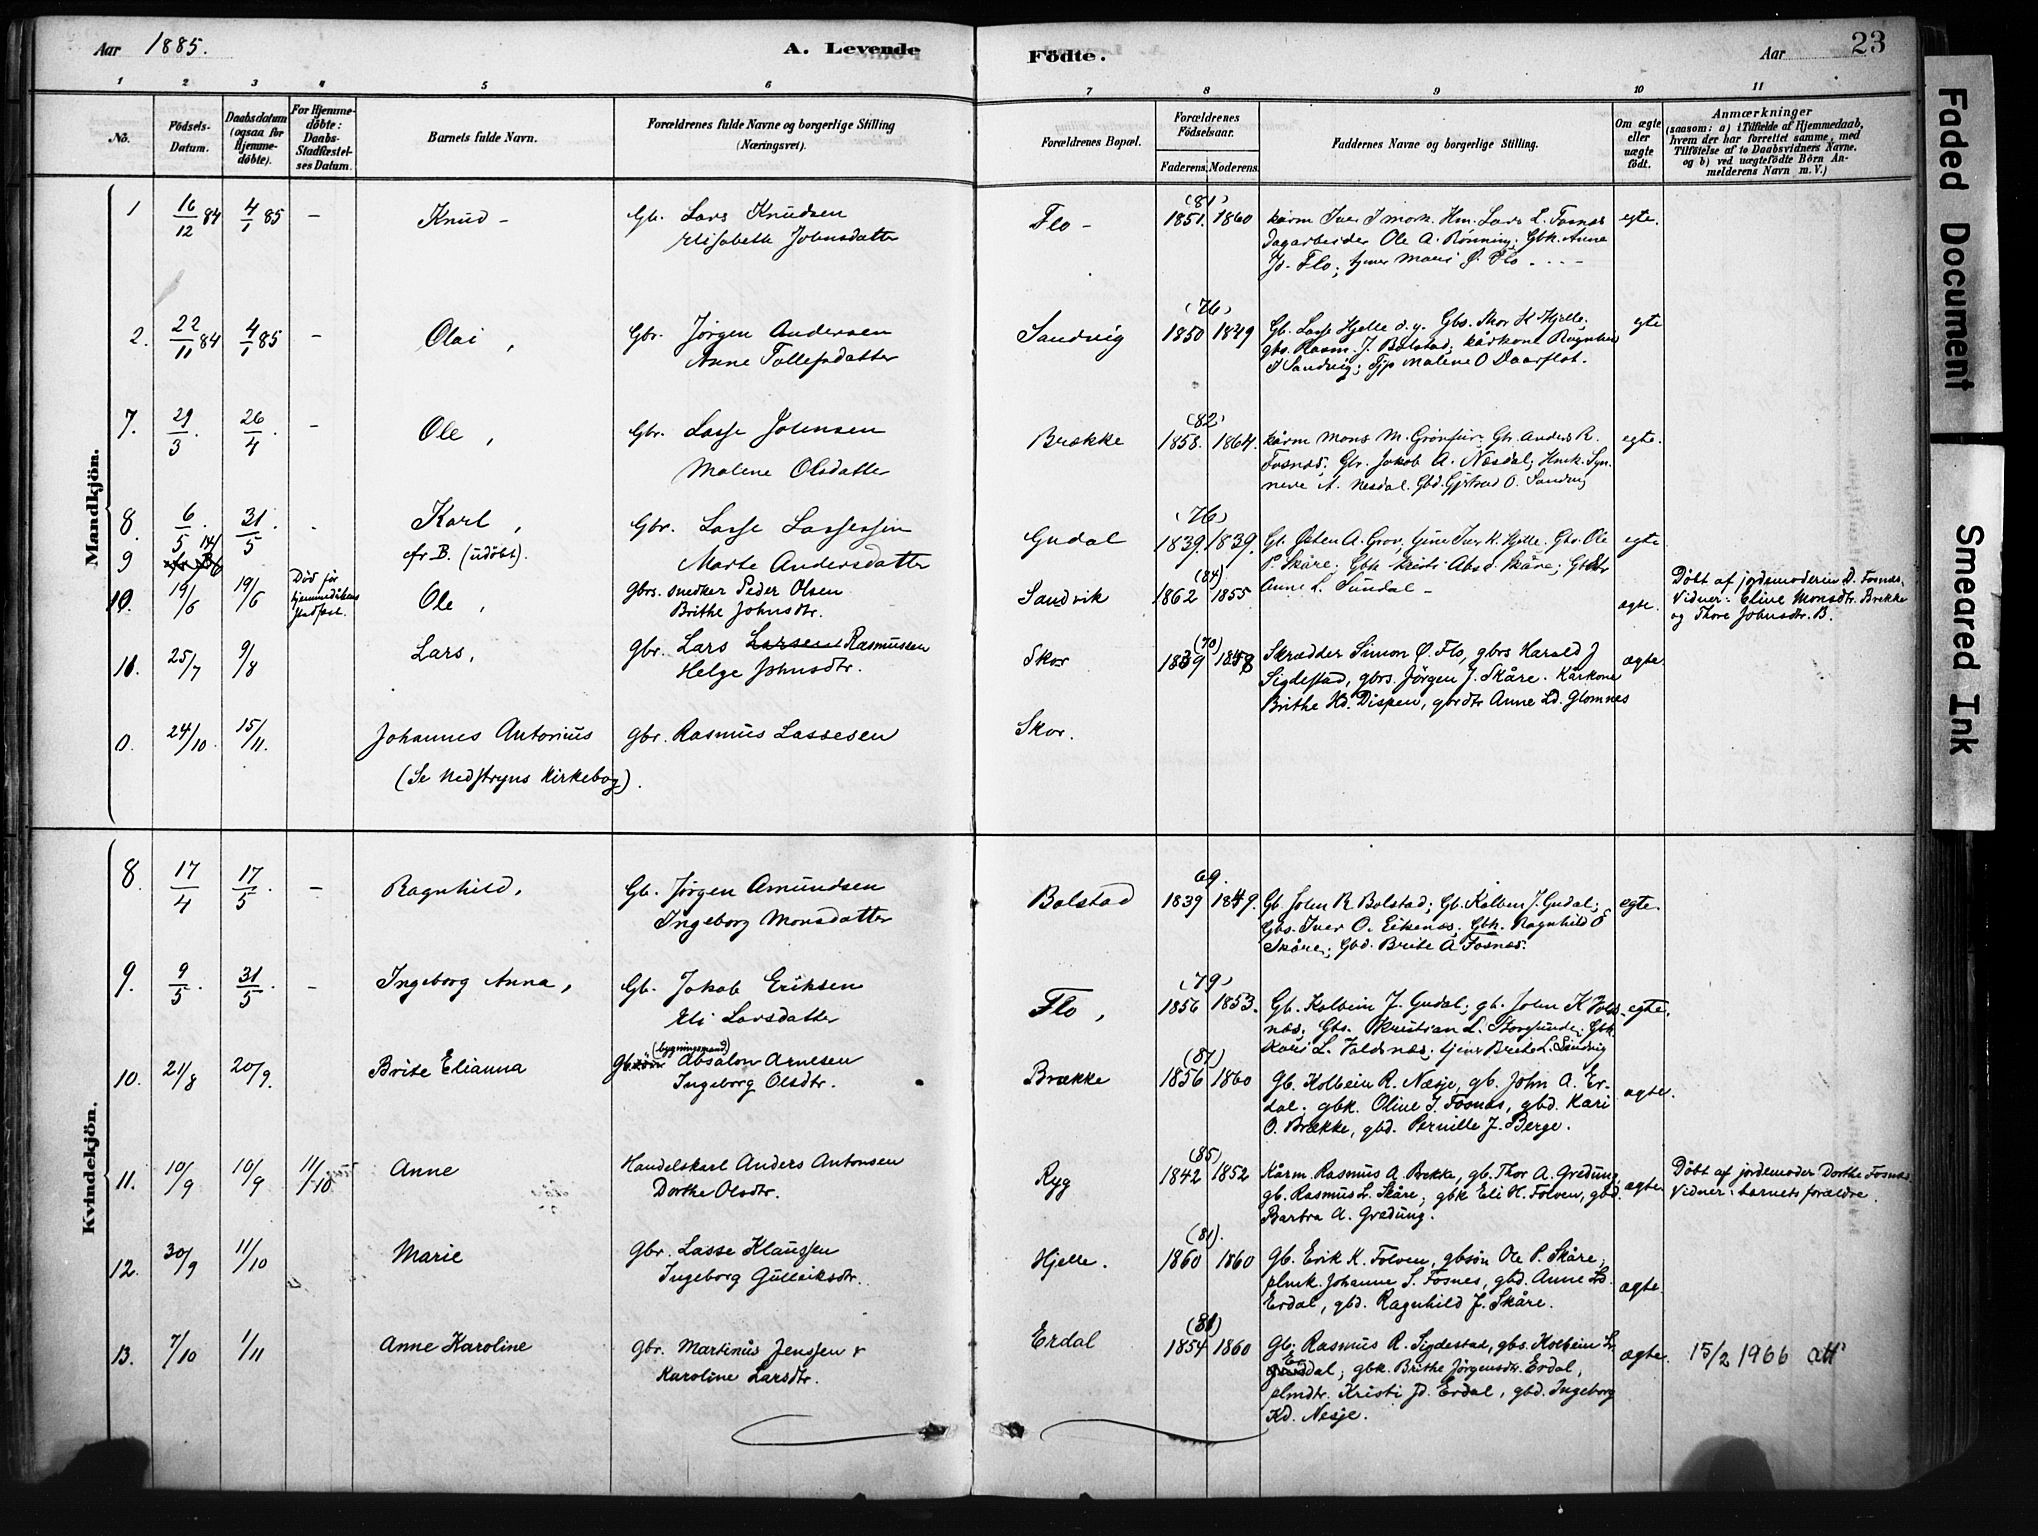 Aar 1885.
A. Levende Födte.
Aar
23
1 2 3 4 5 6 7 8 9 10 11
No.
Födsels-Datum.
Daabsdatum (ogsaa for Hjemme-døbte).
For Hjemme-døbte: Daabs-Stadfæstel-ses Datum.
Barnets fulde Navn.
Forældrenes fulde Navne og borgerlige Stilling (Næringsvei).
Forældrenes Bopæl.
Forældrenes Födselsaar.
Faderens. Moderens.
Faddernes Navne og borgerlige Stilling.
Om ægte eller uægte født.
Anmærkninger
(saasom: a) i Tilfælde af Hjemmedaab,
hvem der har forrettet samme, med
Tilföielse af to Daabsvidners Navne.
og b) ved uægtefødte Börn An-
melderens Navn m. V.)
Mandkjön.
1 16/12 84 4/1 85 – Knud – Gb. Lars Knudsen
Elisabeth Johnsdatter
Flo – (81) 1851. 1860
kårm Iver I mork. Hm. Lars L. Fosnæs
Dagarbeider Ole A. Rønning; Gbk. Anne
Js. Flo; tjener Mari Ø. Flo
egte.
2. 22/11 84 4/1 85 – Olai, Gbr. Jørgen Andersen
Anne Tollefsdatter
Sandvig (76) 1850 1849
Gb. Lasse Hjelle d.y. Gbs. Thor K Hjelle;
gbs. Rasm. J. Bolstad; kårkone Ragnhild
I Sandvig; Tjp Malene O Daarflot.
egte
7. 29/3. 26/4. – Ole, Gbr. Lasse Johnsen
Malene Olsdatter
Brække (82) 1858. 1864.
kårm Mons M. Grønfur; Gb. Anders R.
Fosnæs; Gbr. Jakob A. Næsdal; Hmk. Syn-
neve A. Nesdal. Gbd. Gjertrud O. Sandvig
egte.
8. 6/5. 31/5 Karl, Gbr. Lasse Lassessøn
Marte Andersdatter
Gudal (76) 1839. 1839.
Gb. Østen A. Grov, tjene Iver K. Hjelle. Gbr. Ole
P. Skåre; Gbk Kristi Absd. Skåre; Gbdtr
Anne L. Sundal –
egte
9 cfr B. (udøbt).
10. 19/6 19/6 Død før hjemmedåbens stadfæst. Ole, Gbrs. snedker Peder Olsen
Brithe Johnsdtr.
Sandvik (84) 1862 1855
ægte.
Døbt af jordemoderen D. Fosnæs.
Vidner: Eline Monsdtr. Brekke
og Thore Johnsdtr. B.
11. 25/7 9/8 Lars, gbr. Lars Larsen Rasmussen
Helge Johnsdtr.
Skor (70) 1839 1848
Skrædder Simon Ø. Flo, gbrs Harald J
Sigdestad, gbrs. Jørgen J. Skåre. Kårkone
Brithe Hd. Dispen, gbrdtr Anne Ld. Glomnes
ægte.
0. 24/10. 15/11. Johannes Antonius gbr. Rasmus Lassesen
(Se Nedstryns Kirkebog).
Skor.
Kvindekjön.
8. 17/4 17/5. – Ragnhild, Gb. Jørgen Amundsen
Ingeborg Monsdatter
Bolstad 69. 1839 1849.
Gb John R Bolstad; Gb. Kolben J. Gudal;
Gbs. Iver O. Eikenæs; Gbk. Ragnhild E
Skåre; Gbd. Brite A Fosnæs.
egte.
9. 9/5. 31/5. – Ingeborg Anna, Gb. Jakob Eriksen
Eli Larsdatter
Flo, (79) 1856 1853.
Gb. Kolbein J. Gudal; gb. John K Vols-
næs; Gbs. Kristian L. Storesunde; Gbk
Kari L. Voldsnæs; tjener Brite L. Sandvig
egte.
10. 21/8 20/9. Brite Elianna (bygningsmand) Absalon Arnesen
Ingeborg Olsdtr.
Brække (81) 1856 1860
Gb. Kolbein R. Næsje, gb. John A. Er-
dal; gbk. Oline J. Fosnæs, gbd. Kari
O. Brække, gbd. Pernille J. Berge.
ægte.
11. 10/9 10/9 11/10 Anne Handelskarl Anders Antonsen
Dorthe Olsdtr.
Ryg (85) 1842 1852
Kårm. Rasmus A. Brekke, gb. Thor A. Grødung,
gb. Rasmus L. Skåre; gbk Eli H. Folven, gbd.
Barbra A. Grødung.
ægte
Døbt af jordemoder Dorthe Fosnæs.
Vidner: barnets forældre.
12. 30/9 11/10 Marie Gbr. Lasse Klaussen
Ingeborg Gulleiksdtr.
Hjelle. (81). 1860 1860
Gb. Erik K. Folven, gbsøn Ole P. Skåre;
plmk. Johanne S. Fosnes, gbd. Anne Ld.
Erdal, gbd. Ragnhild J. Skåre.
ægte.
13. 7/10 1/11 Anne Karoline Gbr. Martinus Jenssen &
Karoline Larsdtr.
Erdal (81) 1854 1860
Gb. Rasmus R. Sigdestad, gbs. Kolbein Ls.
Erdal; gbk. Brithe Jørgensdtr. Erdal,
plmdtr. Kristi Jd. Erdal, gbd. Ingeborg
Kd. Nesje.
ægte. 15/2 1966 att
Faded Document
Smeared Ink